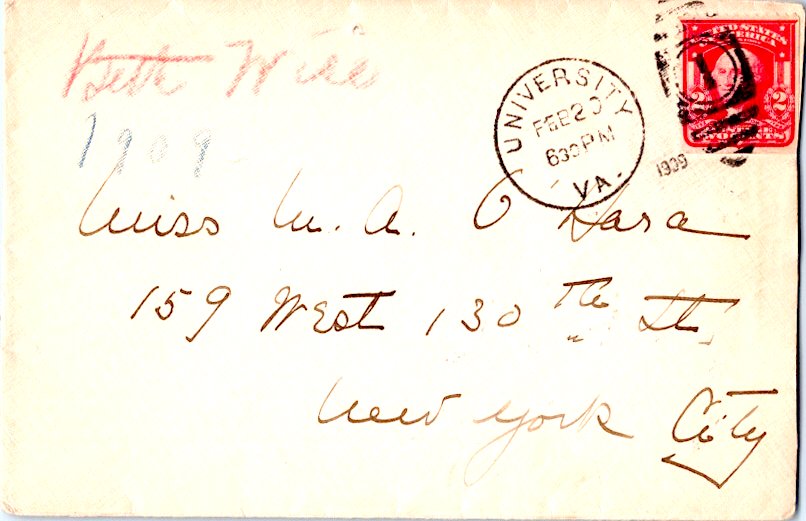 Beth Will
1909
UNIVERSITY
FEB 20
630 PM
VA.
1909
UNITED STATES
AMERICA
2 2
TWO CENTS
Miss M. A. O'Hara
159 West 130th St.
New York City